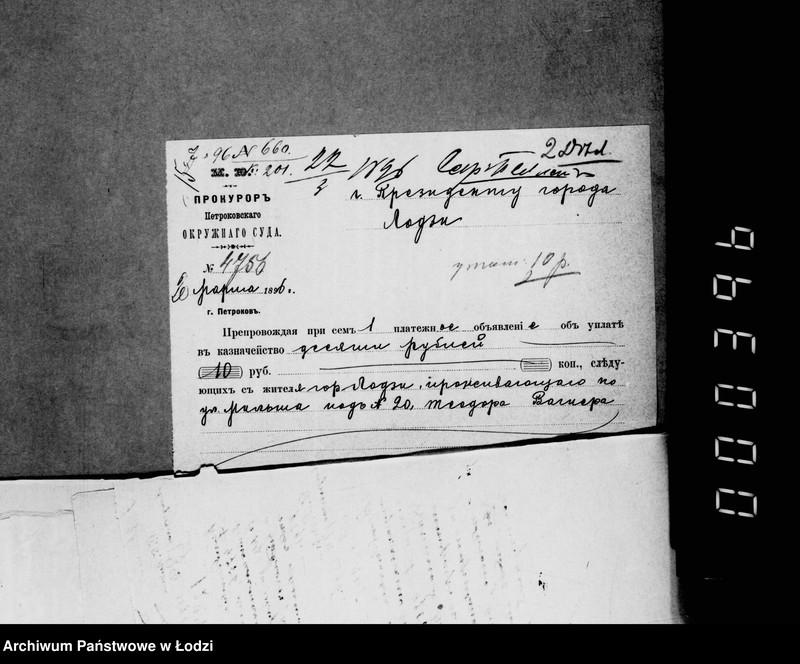 96 № 660
2 Дѣл
М. Ю. 201.
22/3 1896
ПРОКУРОРЪ
Петроковскаго
ОКРУЖНАГО СУДА.
г. Президенту города
Лодзи
№ 4756
10 р.
марта 1896 г.
г. Петроковъ.
Препровождая при семъ 1 платежное объявленіе объ уплатѣ
въ казначейство десяти рублей
(10) руб. коп., слѣду-
ющихъ съ жителя гор. Лодзи, проживающаго по
ул. Мильша подъ № 20, Теодора Вагнера
000396
Archiwum Państwowe w Łodzi